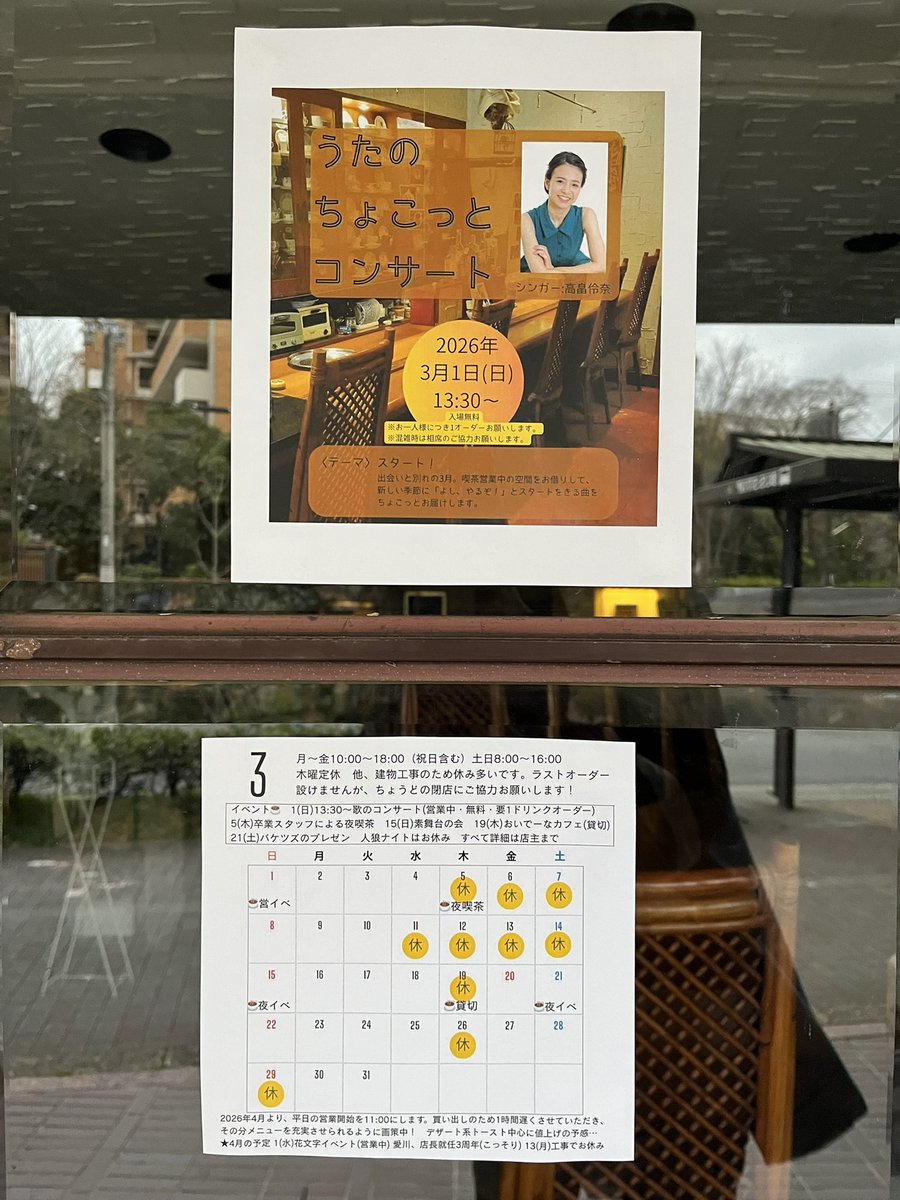 うたの
ちょこっと
コンサート
シンガー:高畠伶奈
2026年
3月1日(日)
13:30〜
入場無料
※お一人様につき1オーダーお願いします。
※混雑時は相席のご協力お願いします。
〈テーマ〉スタート！
出会いと別れの3月。喫茶営業中の空間をお借りして、
新しい季節に「よし、やるぞ！」とスタートをきる曲を
ちょこっとお届けします。
3
月〜金10:00〜18:00（祝日含む）土日8:00〜16:00
木曜定休　他、建物工事のため休み多いです。ラストオーダー
設けませんが、ちょうどの閉店にご協力お願いします！
イベント☕ 1(日)13:30〜歌のコンサート(営業中・無料・要1ドリンクオーダー)
5(木)卒業スタッフによる夜喫茶　15(日)素舞台の会　19(木)おいでーなカフェ(貸切)
21(土)バケツズのプレゼン　人狼ナイトはお休み　すべて詳細は店主まで
日 月 火 水 木 金 土
1 2 3 4 5 6 7
休 休 休
☕営イベ ☕夜喫茶
8 9 10 11 12 13 14
休 休 休 休
15 16 17 18 19 20 21
休
☕夜イベ ☕貸切 ☕夜イベ
22 23 24 25 26 27 28
休
29 30 31
休
2026年4月より、平日の営業開始を11:00にします。買い出しのため1時間遅くさせていただき、
その分メニューを充実させられるように画策中！　デザート系トースト中心に値上げの予感…
★4月の予定 1(水)花文字イベント(営業中) 愛川、店長就任3周年(こっそり) 13(月)工事でお休み